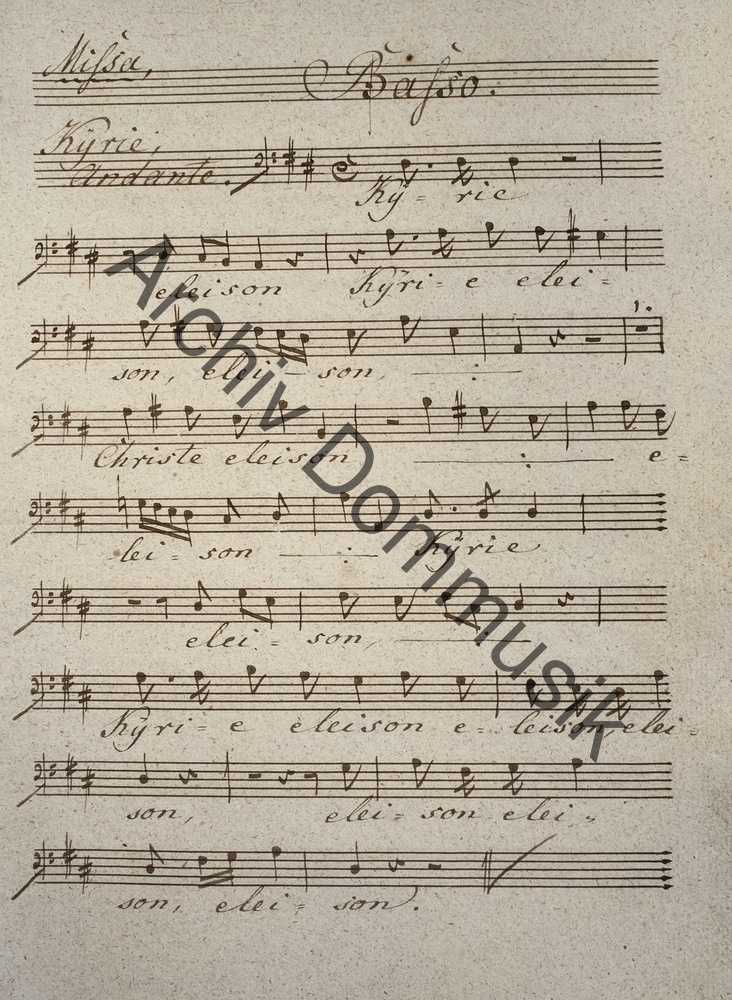 Missa,
Basso.
Kÿrie,
Andante.
Kÿ = rie
eleison Kÿri = e elei =
son, elei - son, — : —
Christe eleison — : — e =
lei = son — : — Kÿrie
elei = son, — : —
Kÿri = e eleison e = leison, elei =
son, elei = son elei =
son, elei = son.
Archiv Dommusik